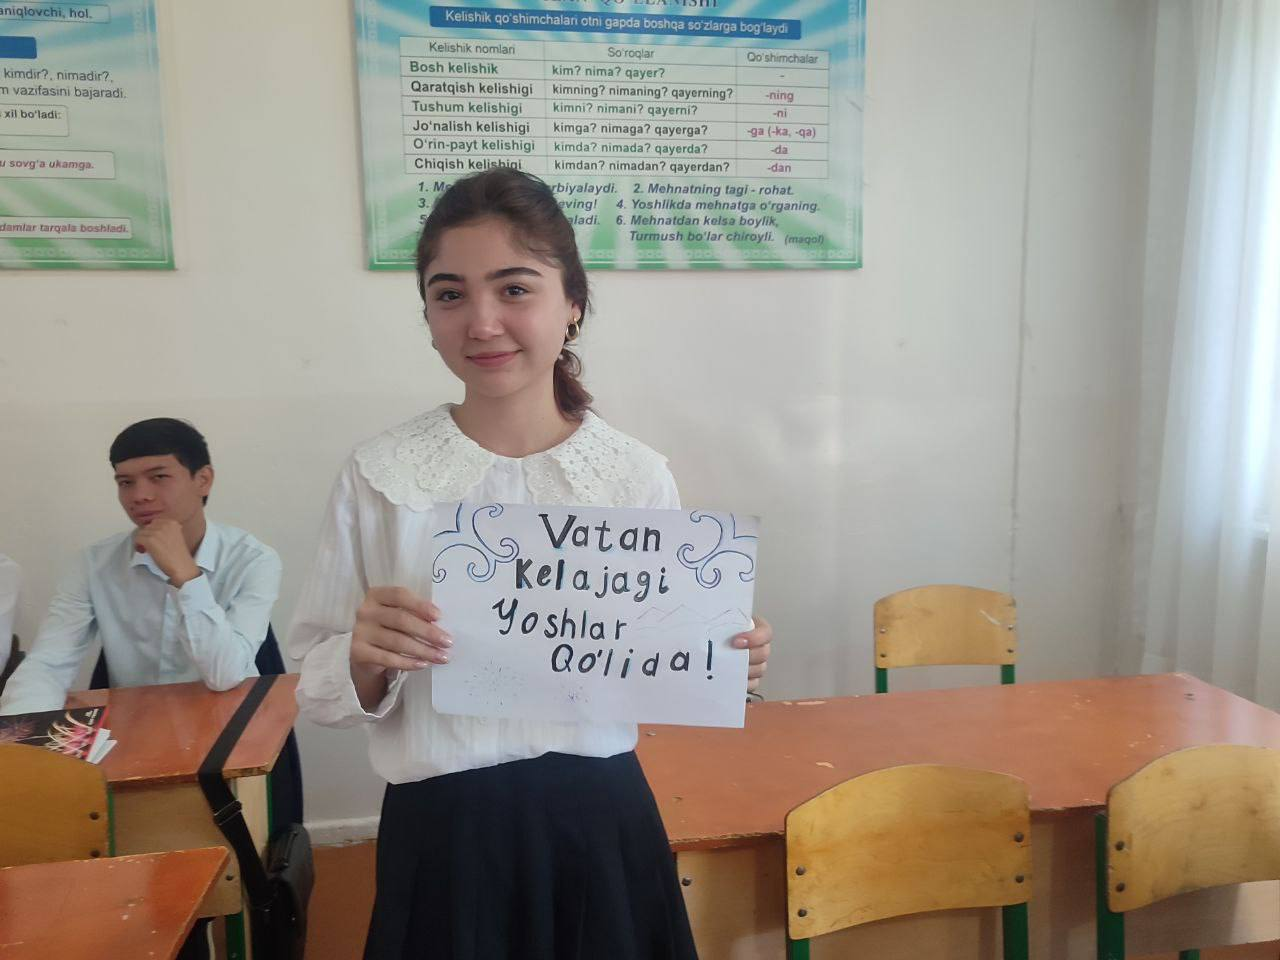 aniqlovchi, hol.
kimdir?, nimadir?,
m vazifasini bajaradi.
xil bo'ladi:
u sovg'a ukamga.
damlar tarqala boshladi.
Kelishik qo'shimchalari otni gapda boshqa so'zlarga bog'laydi
Kelishik nomlari So'roqlar Qo'shimchalar
Bosh kelishik kim? nima? qayer? -
Qaratqish kelishigi kimning? nimaning? qayerning? -ning
Tushum kelishigi kimni? nimani? qayerni? -ni
Jo'nalish kelishigi kimga? nimaga? qayerga? -ga (-ka, -qa)
O'rin-payt kelishigi kimda? nimada? qayerda? -da
Chiqish kelishigi kimdan? nimadan? qayerdan? -dan
1. rbiyalaydi. 2. Mehnatning tagi - rohat.
3. eving! 4. Yoshlikda mehnatga o'rganing.
5. aladi. 6. Mehnatdan kelsa boylik,
Turmush bo'lar chiroyli. (maqol)
Vatan
Kelajagi
Yoshlar
Qo'lida!